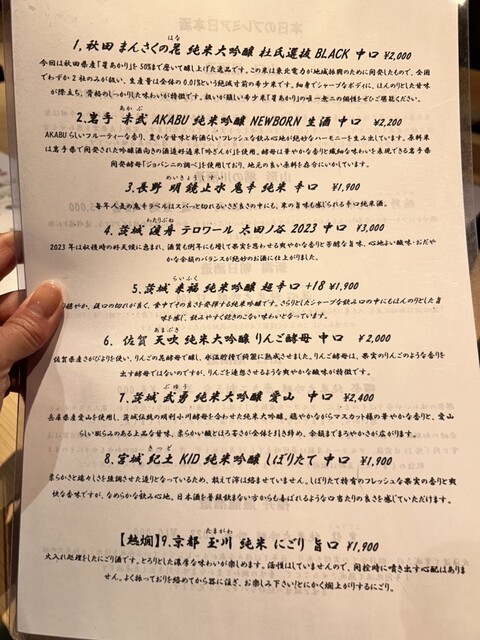 はな
1, 秋田 まんさくの花 純米大吟醸 杜氏選抜 BLACK 中口 ¥2,000
今回は秋田県産「星あかり」を50%まで磨いて醸し上げた逸品です。この米は東北電力が地域振興のために開発したもので、全国
でわずか2社のみが扱い、生産量は全体の0.01%という絶滅寸前の希少米です。細身でシャープなボディに、ほんのりとした甘味
が際立ち、骨格のしっかりした味わいが特徴です。扱いが難しい希少米「星あかり」の唯一無二の個性をぜひご堪能ください。
あかぶ
2.岩手 赤武 AKABU 純米吟醸 NEWBORN 生酒 中口 ¥2,200
AKABUらしいフルーティーな香り、豊かな甘味と新酒らしいフレッシュな飲み心地が絶妙なハーモニーを生み出しています。原料米
は岩手県で開発された吟醸酒向きの酒造好適米「吟ぎんが」を使用。酵母は華やかな香りと繊細な味わいを表現できる岩手県
開発酵母「ジョバンニの調べ」を使用しており、地元の良い原料を存分にいかしています。
めいきょうしすい
3.長野 明鏡止水 鬼辛 純米 辛口 ¥1,900
毎年人気の鬼辛ラベルはスパっと切れるいさぎ良さの中にも、米の旨味も感じられる辛口純米酒。
わたりぶね
4. 茨城 渡舟 テロワール 太田ノ谷 2023 中口 ¥3,000
2023年は収穫時の好天候に恵まれ、酒質も例年にも増して果実を思わせる爽やかな香りと芳醇な旨味、心地よい酸味・おだや
かな余韻のバランスが絶妙のお酒に仕上がりました。
らいふく
5.茨城 来福 純米吟醸 超辛口 +18 ¥1,900
穏やか、後口の切れが良く、食中でその良さを発揮する純米吟醸です。さらりとしたシャープな飲み口の中にもほんのりとした旨
味を感じ、飲みやすく飽きのこない味わいとなっています。
あまぶき
6. 佐賀 天吹 純米大吟醸 りんご酵母 中口 ¥2,000
佐賀県産さがびよりを使い、りんごの花酵母で醸し、氷温貯蔵で綺麗に熟成させました。りんご酵母は、果実のりんごのような香りを
出す酵母ではないのですが、りんごを連想させるような爽やかな酸味が特徴です。
ぶゆう
7.茨城 武勇 純米大吟醸 愛山 中口 ¥2,400
兵庫県産愛山を使用し、茨城伝統の明利小川酵母を合わせた純米大吟醸。穏やかながらマスカット様の華やかな香りと、愛山
らしい膨らみのある上品な甘味、柔らかい酸とほろ苦さが全体を引き締め、余韻までまろやかさが広がります。
きっど
8.宮城 紀土 KID 純米吟醸 しぼりたて 中口 ¥1,900
柔らかさと瑞々しさを強調させた造りとなっているため、敢えて澪は絡ませていません。しぼりたて特有のフレッシュな果実の香りと爽
快な含味ですが、なめらかな飲み心地。日本酒を普段飲まない方からも喜ばれるような口当たりの良さを感じていただけます。
たまがわ
【熱燗】9.京都 玉川 純米 にごり 旨口 ¥1,900
火入れ処理をしたにごり酒です。とろりとした濃厚な味わいが楽しめます。活性はしていませんので、開栓時に噴き出す心配はありま
せん。よく振っておりを絡めてから器に注ぎ、お楽しみ下さい!とにかく燗上がりするにごり。